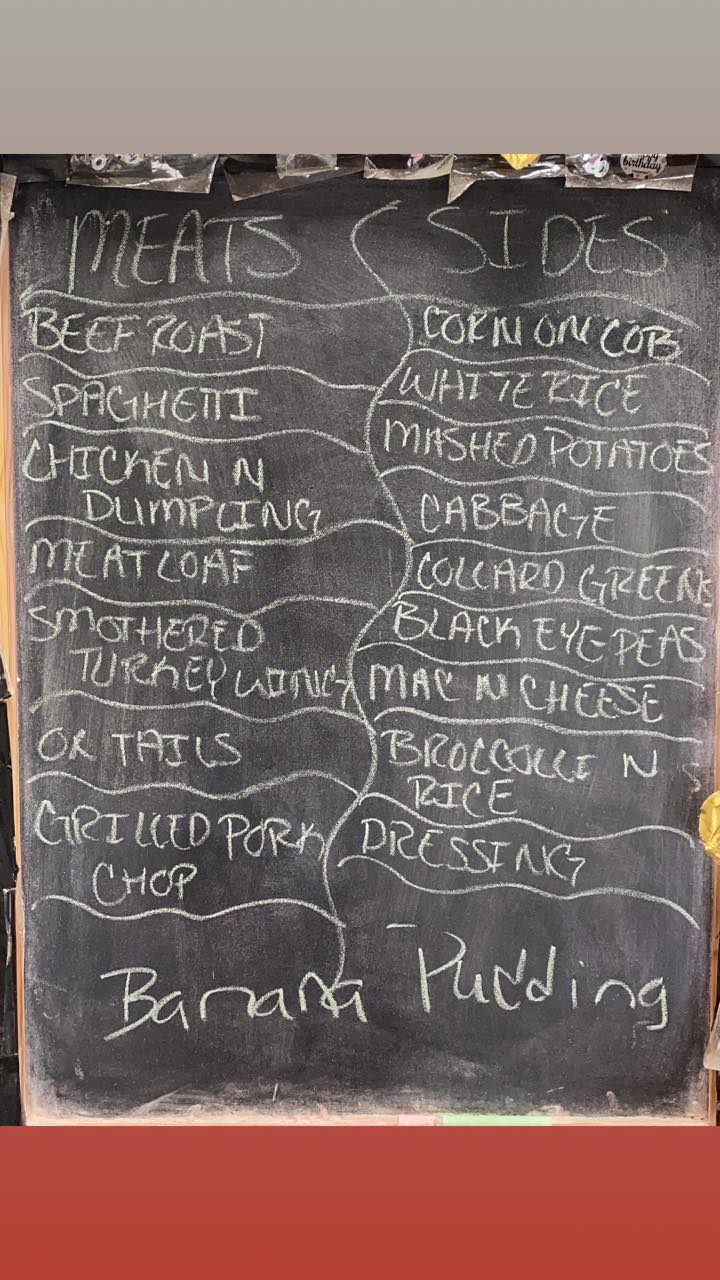 MEATS
BEEF ROAST
SPAGHETTI
CHICKEN N
DUMPLING
MEATLOAF
SMOTHERED
TURKEY WING
OX TAILS
GRILLED PORK
CHOP
SIDES
CORN ON COB
WHITE RICE
MASHED POTATOES
CABBAGE
COLLARD GREENS
BLACK EYE PEAS
MAC N CHEESE
BROCCOLLI N
RICE
DRESSING
Banana Pudding
birthday